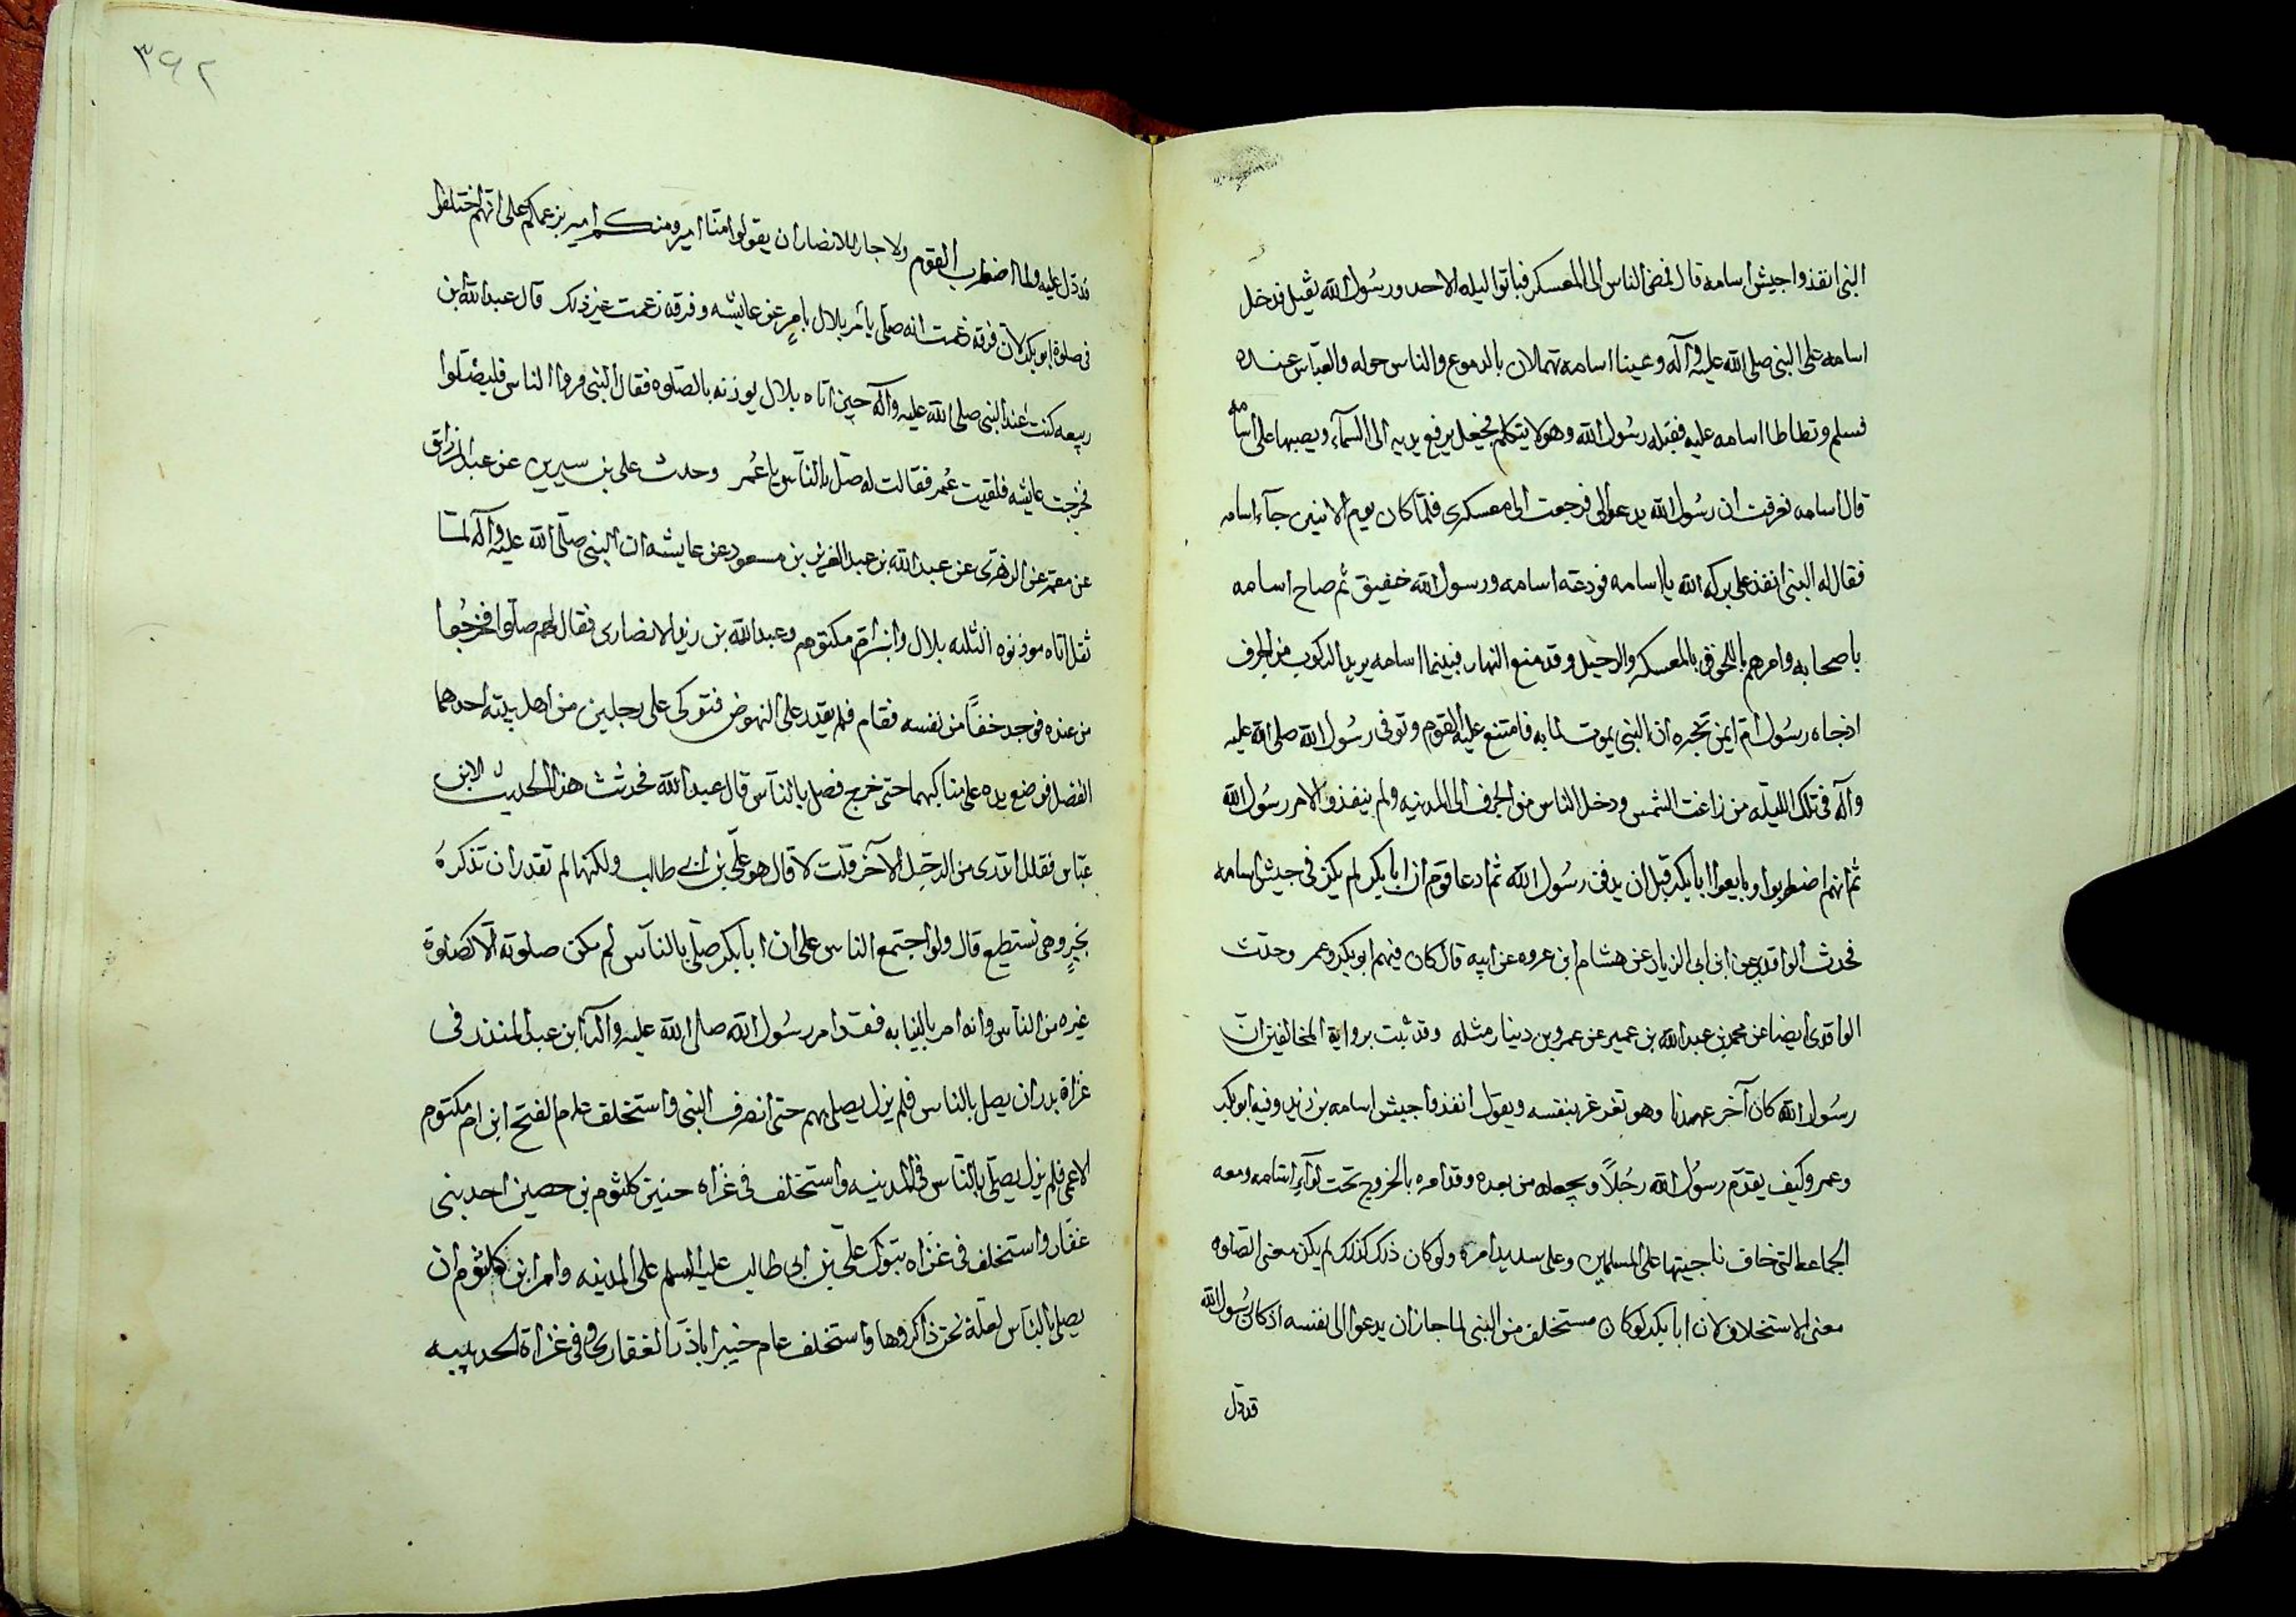 النبي انفذوا جيش اسامه قال فمضى الناس الى المعسكر فباتوا ليله الاحد ورسول الله ثقيل فدخل
اسامه على النبي صلى الله عليه وآله وعينا اسامه تهملان بالدموع والناس حوله والعباس عنده
فسلم وتطاطا اسامه عليه فقبله رسول الله وهو لا يتكلم فجعل يرفع يديه الى السمآء ويصبها على اسامه
قال اسامه فعرفت ان رسول الله يدعو لى فرجعت الى معسكرى فلما كان يوم الاثنين جآء اسامه
فقال له النبي انفذ على بركه الله يا اسامه فودعه اسامه ورسول الله خفيق ثم صاح اسامه
باصحابه وامرهم باللحوق بالمعسكر والرحيل وقد متع النهار فبينما اسامه يريد الركوب من الجرف
اذ جاه رسول ام ايمن تخبره ان النبي يموت لما به فامتنع عليه القوم وتوفى رسول الله صلى الله عليه
وآله فى تلك الليله من زاغت الشمس ودخل الناس من الجرف الى المدينه ولم ينفذوا لامر رسول الله
ثم انهم اضطربوا وبايعوا ابا بكر قبل ان يدفن رسول الله ثم ادعا قوم ان ابا بكر لم يكن فى جيش اسامه
فحدث الواقدى عن ابن ابى الزياد عن هشام ابن عروه عن ابيه قال كان فيهم ابو بكر وعمر وحدث
الواقدى ايضا عن محمد بن عبد الله بن عمير عن عمرو بن دينار مثله وقد ثبت برواية المخالفين ان
رسول الله كان آخر عهدنا وهو تغرغر بنفسه ويقول انفذوا جيش اسامه بن زيد وفيه ابو بكر
وعمر وكيف يقدم رسول الله رجلاً ويجعله من بعده وقد امره بالخروج تحت لوآء اسامه ومعه
الجماعه التى خاف ناجيتها على المسلمين وعلى سديد امره ولو كان ذلك كذلك لم يكن معنى الصلوه
معنى الاستخلاف لان ابا بكر لو كان مستخلف من النبي لما جاز ان يدعوا الى نفسه اذ كان رسول الله
قد دل
٣٩٢
قد دل عليه ولما اضطرب القوم ولا جاز للانصار ان يقولوا منا امير ومنكم امير بزعمكم على انهم اختلفوا
فى صلوة ابو بكر لان فرقه زعمت انه صلى يامر بلال بامرٍ عن عايشه وفرقه زعمت غير ذلك قال عبد الله بن
ربيعه كنت عند النبي صلى الله عليه وآله حين اتاه بلال يوذنه بالصلوه فقال النبي مروا الناس فليصلوا
فخرجت عايشه فلقيت عمر فقالت له صل بالناس يا عمر وحدث على بن سيرين عن عبد الرزاق
عن معمر عن الزهرى عن عبد الله بن عبد العزيز بن مسعود عن عايشه ان النبي صلى الله عليه وآله لما
ثقل اتاه موذنوه الثلثه بلال وابن ام مكتوم وعبد الله بن زيد الانصارى فقال لهم صلوا فخرجوا
من عنده فوجد خفاً من نفسه فقام فلم يقدر على النهوض فتوكى على رجلين من اهل بيته احدهما
الفضل فوضع يده على مناكبهما حتى خرج فصل بالناس قال عبد الله فحدثت هذا الحديث لابن
عباس فقال اتدرى من الرجل الآخر قلت لا قال هو على بن ابى طالب ولكنها لم تقدر ان تذكره
بخيرٍ وهى تستطيع قال ولو اجتمع الناس على ان ابا بكر صلى بالناس لم تكن صلوته الا كصلوة
غيره من الناس وانه امر بالنيابه فقد امر رسول الله صلى الله عليه وآله ابن عبد المنذر فى
غزاة بدر ان يصل بالناس فلم يزل يصلى بهم حتى انصرف النبي واستخلف عام الفتح ابن ام مكتوم
الاعمى فلم يزل يصلى بالناس فى المدينه واستخلف فى غزاه حنين كلثوم بن حصين احد بنى
غفار واستخلف فى غزاه تبوك على بن ابى طالب عليه السلم على المدينه وامر ابن كلثوم ان
يصلى بالناس لعلة نحن ذاكروها واستخلف عام خيبر اباذر الغفارى وفى غزاة الحديبيه